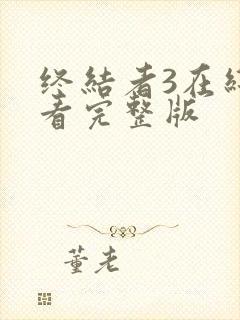 终结者3在线
看完整版
董老